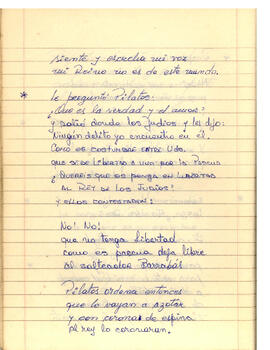 siente y escucha mi voz
mi Reino no es de este mundo.
* Le preguntó Pilatos:
¿Que es la verdad y el amor?
y salió donde los Judios y les dijo:
Ningún delito yo encuentro en él.
Como es costumbre entre Uds.
que se de libertad a uno por la Pascua
¿Quereis que os ponga en libertad
al REY de los Judios?
y ellos contestaron:
No! No!
que no tenga libertad
como es pascua deja libre
al salteador Barrabás.
Pilatos ordena entonces
que lo vayan a azotar
y con corona de espina
Al rey lo coronaran.